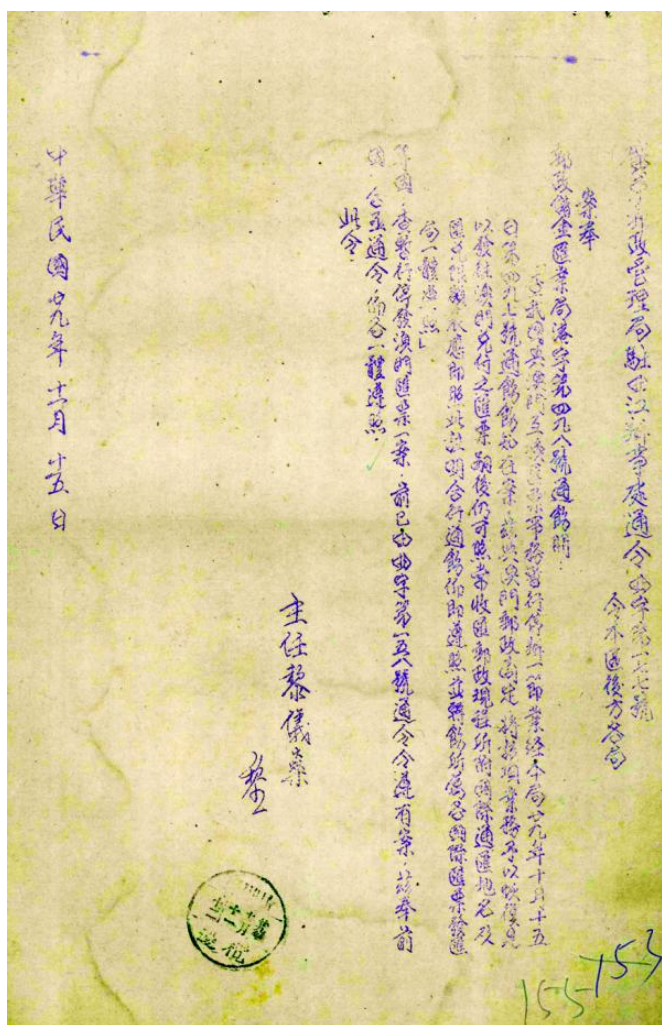 郵政管理局駐曲江辦事處通令曲字第一七七號
令本區後方各局
案奉
郵政儲金匯業局港字第四九八號通飭開
查我國與澳門互換匯票事務暫行停辦一節業經本局廿九年十月十五
日第四九七號通飭飭知在案茲與澳門郵政商定將該項業務予以恢復
以發往澳門兌付之匯票嗣後仍可照常收匯郵政現程所附國際通匯地名及
匯兌限額表應即照此註明合行通飭仰即遵照並轉飭所屬各國際匯票發匯
局一體遵照」
等因查暫行停發澳門匯票一案前已由曲字第一五八號通令令遵有案茲奉前
因合亟通令仰各一體遵照
此令
主任黎儀燊
黎
中華民國廿九年十二月十五日
153
155